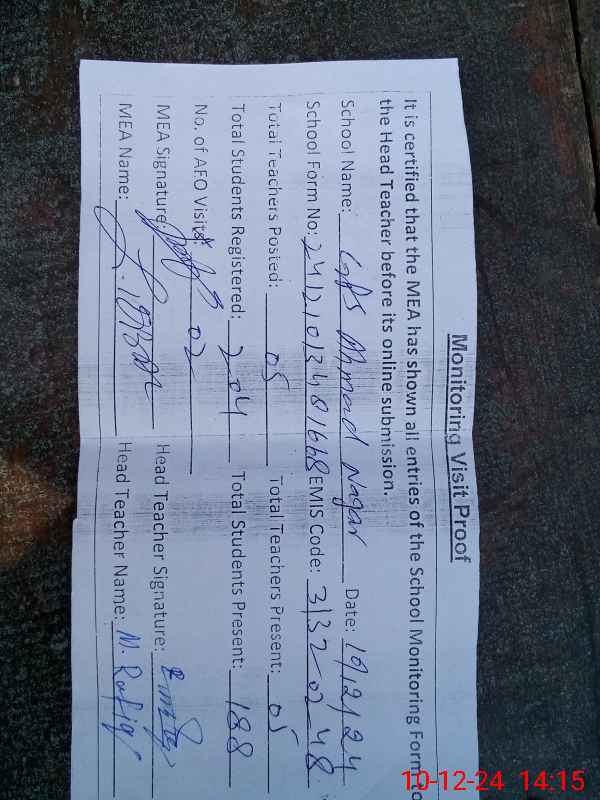 Monitoring Visit Proof
It is certified that the MEA has shown all entries of the School Monitoring Form to
the Head Teacher before its online submission.
School Name: GPS Ahmad Nagar Date: 10/12/24
School Form No: EMIS Code: 31320248
Total Teachers Posted: 05 Total Teachers Present: 05
Total Students Registered: 204 Total Students Present: 188
No. of AEO Visits: 02
MEA Signature: Head Teacher Signature:
MEA Name: Head Teacher Name: M. Rafiq
10-12-24 14:15